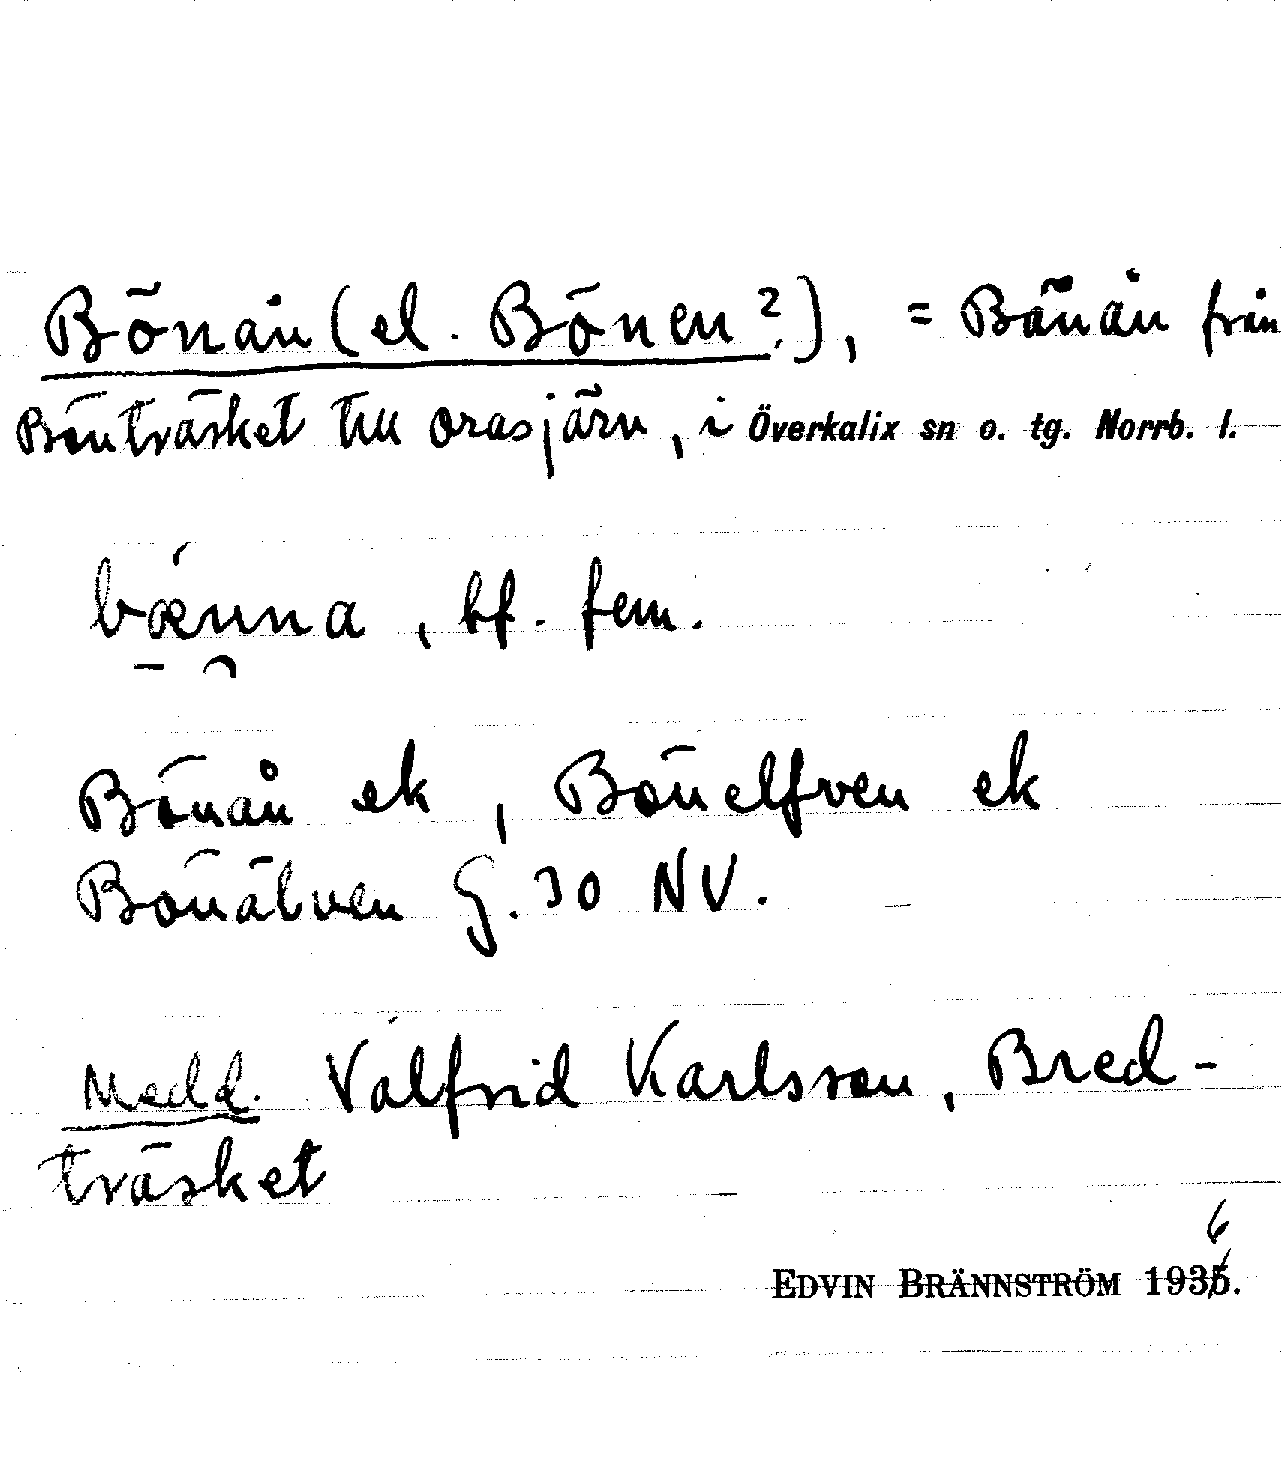 Bönån (el. Bönen?), = Bönån från
Bönträsket till Orasjärv, i Överkalix sn o. tg. Norrb. l.
bœ́nna, bf. fem.
Bönån ek, Bönelfven ek
Bönälven G. 30 NV.
Medd. Valfrid Karlsson, Bred-
träsket
6
EDVIN BRÄNNSTRÖM 1935.